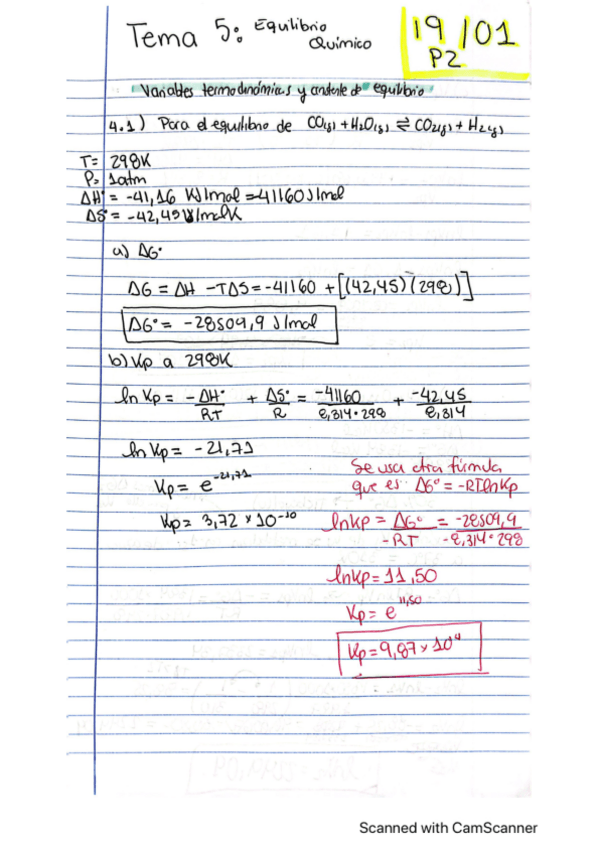 Tema 5: Equilibrio Químico
19/01
P2
Variables termodinámicas y constante de equilibrio
4.1) Para el equilibrio de CO(g) + H2O(g) ⇌ CO2(g) + H2(g)
T= 298K
P= 1atm
ΔH° = -41,16 KJ/mol = -41160 J/mol
ΔS° = -42,45 J/molK
a) ΔG°
ΔG = ΔH - TΔS = -41160 + [(42,45)(298)]
ΔG° = -28509,9 J/mol
b) Kp a 298K
ln Kp = -ΔH°/RT + ΔS°/R = -41160/8,314·298 + -42,45/8,314
ln Kp = -21,71
Kp = e^-21,71
Kp = 3,72 × 10^-10
Se usa otra fórmula
que es ΔG° = -RTlnKp
lnKp = ΔG°/-RT = -28509,9/-8,314·298
lnKp = 11,50
Kp = e^11,50
Kp = 9,87 × 10^4
Scanned with CamScanner